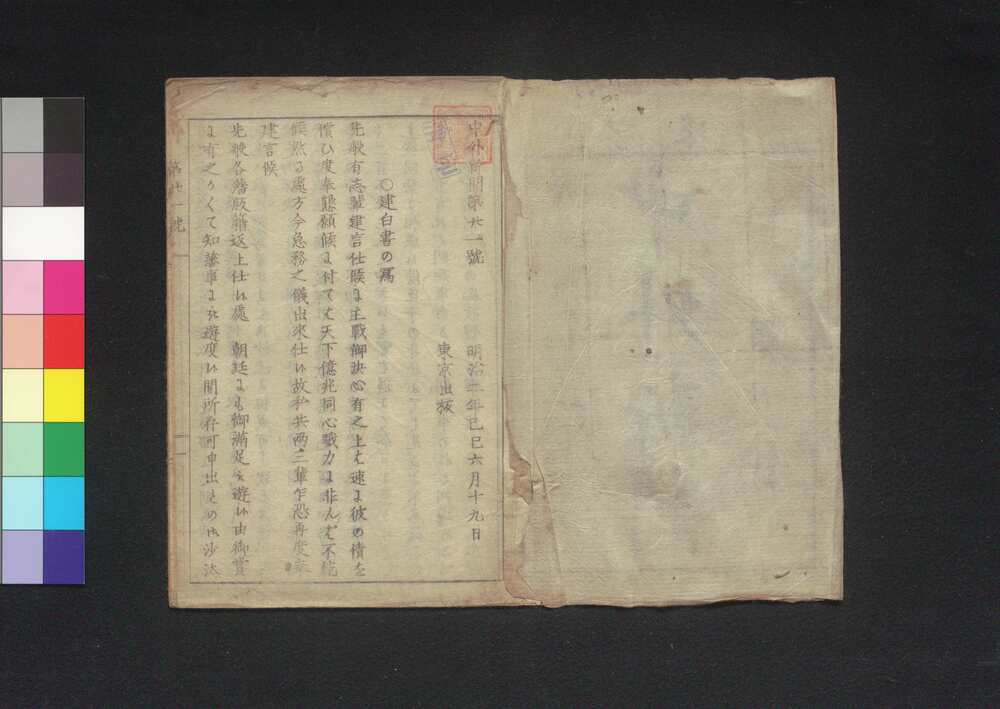 中外新聞第廿一號 明治二年己巳六月十九日
東京出板
○建白書の寫
先般有志輩建言仕候は主戰御決心有之上は速に彼の債を
償ひ度奉懇願候に付ては天下億兆同心戮力に非んば不能
候然る處方今急務之儀出來仕い故私共兩三輩乍恐再度
建言候
先般各藩版籍返上仕い處 朝廷にも御滿足 遊い由御賞
に有之 くて知藩事に 遊度い間所存可申出との御沙汰
第廿一號